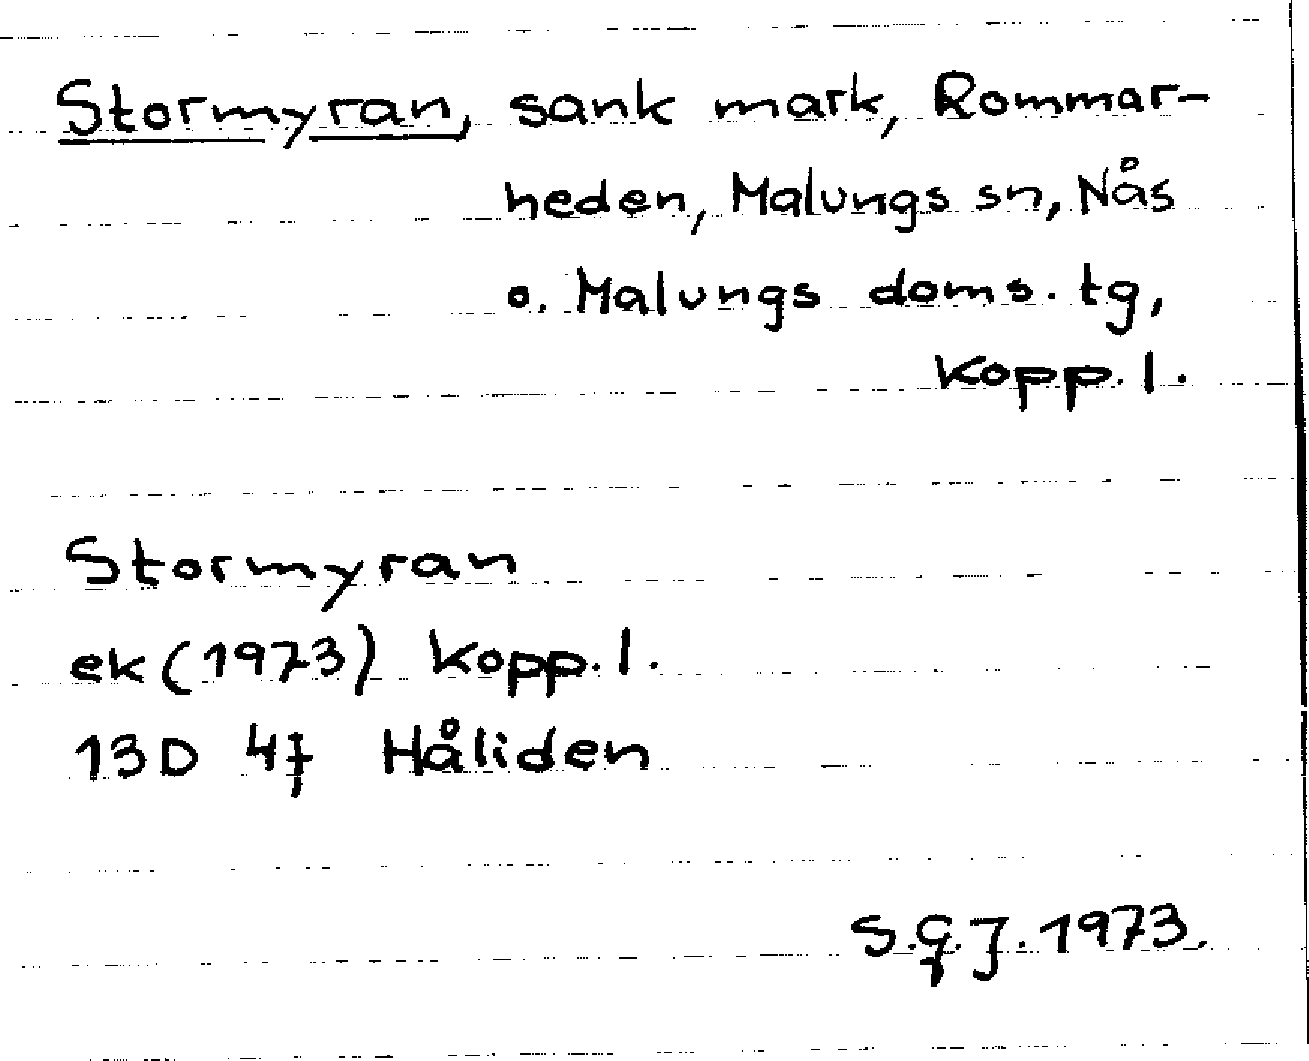 Stormyran, sank mark, Rommar-
heden, Malungs sn, Nås
o. Malungs doms. tg,
Kopp. l.
Stormyran
ek (1973) Kopp. l.
13D 4f Håliden
S.G.J. 1973.